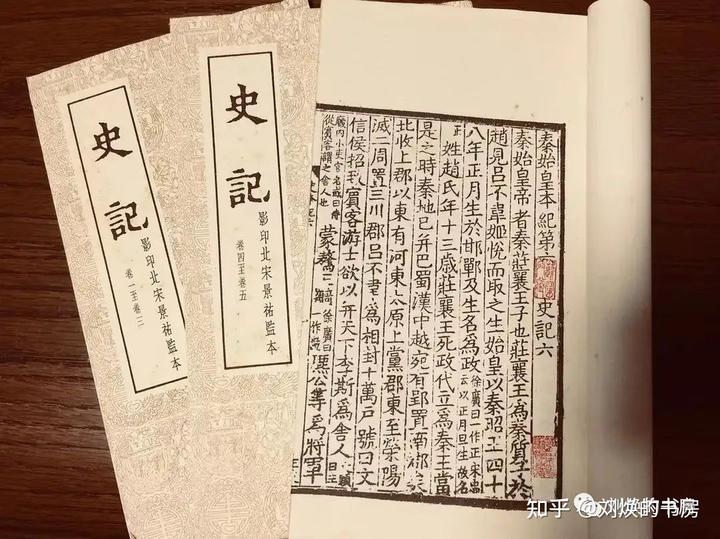 史記
影印北宋景祐監本
卷一至卷三
史記
影印北宋景祐監本
卷四至卷五
秦始皇本紀第六 史記六
秦始皇帝者秦莊襄王子也莊襄王為秦質子於
趙見呂不韋姬悅而取之生始皇以秦昭王四十
八年正月生於邯鄲及生名為政徐廣曰一作正宋忠云以正月旦生故名正
姓趙氏年十三歲莊襄王死政代立為秦王當
是之時秦地已并巴蜀漢中越宛有郢置南郡矣
北收上郡以東有河東太原上黨郡東至滎陽
滅二周置三川郡呂不韋為相封十萬戶號曰文
信侯招致賓客游士欲以并天下李斯為舍人
廄內小吏官名或曰侍從賓客謂之舍人也 蒙驁 王齮徐廣曰一作齕 麃公等為將軍
知乎 @刘焕的书房